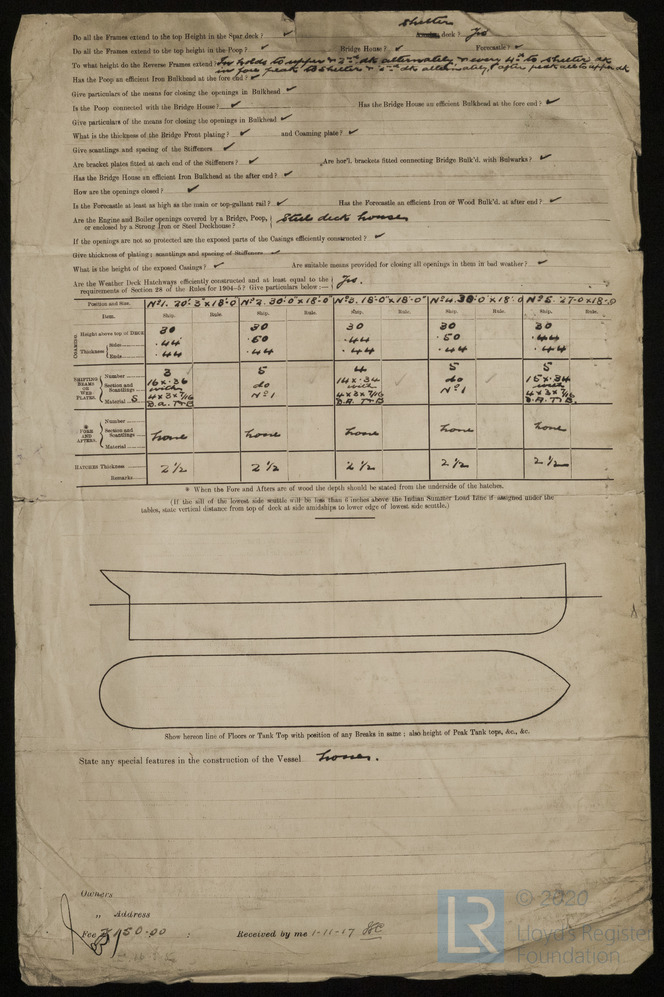 Shelter
Do all the Frames extend to the top Height in the Spar deck? ✓ Awning deck? Yes
Do all the Frames extend to the top height in the Poop? ✓ Bridge House? ✓ Forecastle? ✓
To what height do the Reverse Frames extend? In holds to upper & 2nd dk alternately & every 4th to shelter dk
in fore peak to shelter & dk alternately, & after peak all to upper dk
Has the Poop an efficient Iron Bulkhead at the fore end? ✓
Give particulars of the means for closing the openings in Bulkhead ✓
Is the Poop connected with the Bridge House? ✓ Has the Bridge House an efficient Bulkhead at the fore end? ✓
Give particulars of the means for closing the openings in Bulkhead ✓
What is the thickness of the Bridge Front plating? ✓ and Coaming plate? ✓
Give scantlings and spacing of the Stiffeners ✓
Are bracket plates fitted at each end of the Stiffeners? ✓ Are hor'l. brackets fitted connecting Bridge Bulk'd. with Bulwarks? ✓
Has the Bridge House an efficient Iron Bulkhead at the after end? ✓
How are the openings closed? ✓
Is the Forecastle at least as high as the main or top-gallant rail? ✓ Has the Forecastle an efficient Iron or Wood Bulk'd. at after end? ✓
Are the Engine and Boiler openings covered by a Bridge, Poop, or enclosed by a Strong Iron or Steel Deckhouse? Steel deck houses
If the openings are not so protected are the exposed parts of the Casings efficiently constructed? ✓
Give thickness of plating; scantlings and spacing of Stiffeners ✓
What is the height of the exposed Casings? ✓ Are suitable means provided for closing all openings in them in bad weather? ✓
Are the Weather Deck Hatchways efficiently constructed and at least equal to the requirements of Section 28 of the Rules for 1904–5? Give particulars below:— Yes.
Position and Size. No 1. 20·3 x 18·0 No 2. 30·0 x 18·0 No 3. 18·0 x 18·0 No 4. 30·0 x 18·0 No 5. 27·0 x 18·0
Item. Ship. Rule. Ship. Rule. Ship. Rule. Ship. Rule. Ship. Rule.
COAMING
Height above top of DECK 30 30 30 30 30
Thickness Sides ·44 ·50 ·44 ·50 ·44
Ends ·44 ·44 ·44 ·44 ·44
SHIFTING BEAMS OR WEB PLATES.
Number 3 5 4 5 5
Section and Scantlings 16 x ·36 with 4 x 3 x 7/16 B.A. T.B do No 1 14 x ·34 with 4 x 3 x 7/16 B.A. T.B do No 1 15 x ·34 with 4 x 3 x 7/16 B.A. T.B.
Material S
* FORE AND AFTERS.
Number
Section and Scantlings none none none none none
Material
HATCHES Thickness 2 ½ 2 ½ 2 ½ 2 ½ 2 ½
Remarks
* When the Fore and Afters are of wood the depth should be stated from the underside of the hatches.
(If the sill of the lowest side scuttle will be less than 6 inches above the Indian Summer Load Line if assigned under the
tables, state vertical distance from top of deck at side amidships to lower edge of lowest side scuttle.)
Show hereon line of Floors or Tank Top with position of any Breaks in same; also height of Peak Tank tops, &c., &c.
State any special features in the construction of the Vessel none.
Owners
" Address
Fee 150·00 : Received by me 1-11-17
LR
© 2020
Lloyd's Register
Foundation